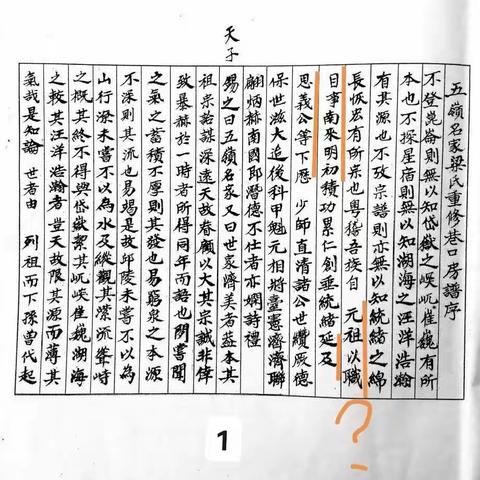 五嶺名家梁氏重修巷口房譜序
不登崑崙則無以知岱嶽之峻岏崔巍有所
本也不探星宿則無以知湖海之汪洋浩瀚
有其源也不攷宗譜則亦無以知統緒之綿
長恢宏有所也粵稽吾族自 元祖以職
日事南來明初積功累仁創垂統緒延及
思義公等下歷 少師直清諸公世纘厥德
保世滋大追後科甲魁元相將臺憲濟濟聯
翩炳赫南國即潛德不仕者亦嫻詩禮
天子
錫之曰五嶺名家又曰世裒濟美者蓋本其
祖宗詒謀深遠天故眷顧以大其宗誠非倖
致暴赫於一時者所得同年而語也閒嘗聞
之氣之蓄積不厚則其發也易窮泉之本源
不深則其流也易竭是故邱陵未嘗不以為
山行潦未嘗不以為水及縱觀其淙流聳峙
之概其終不得與岱嶽絜其岏崔巍湖海
之較其汪洋浩瀚者豈天故限其源而薄其
氣哉是知論 世者由 列祖而下孫曾代起
?
1